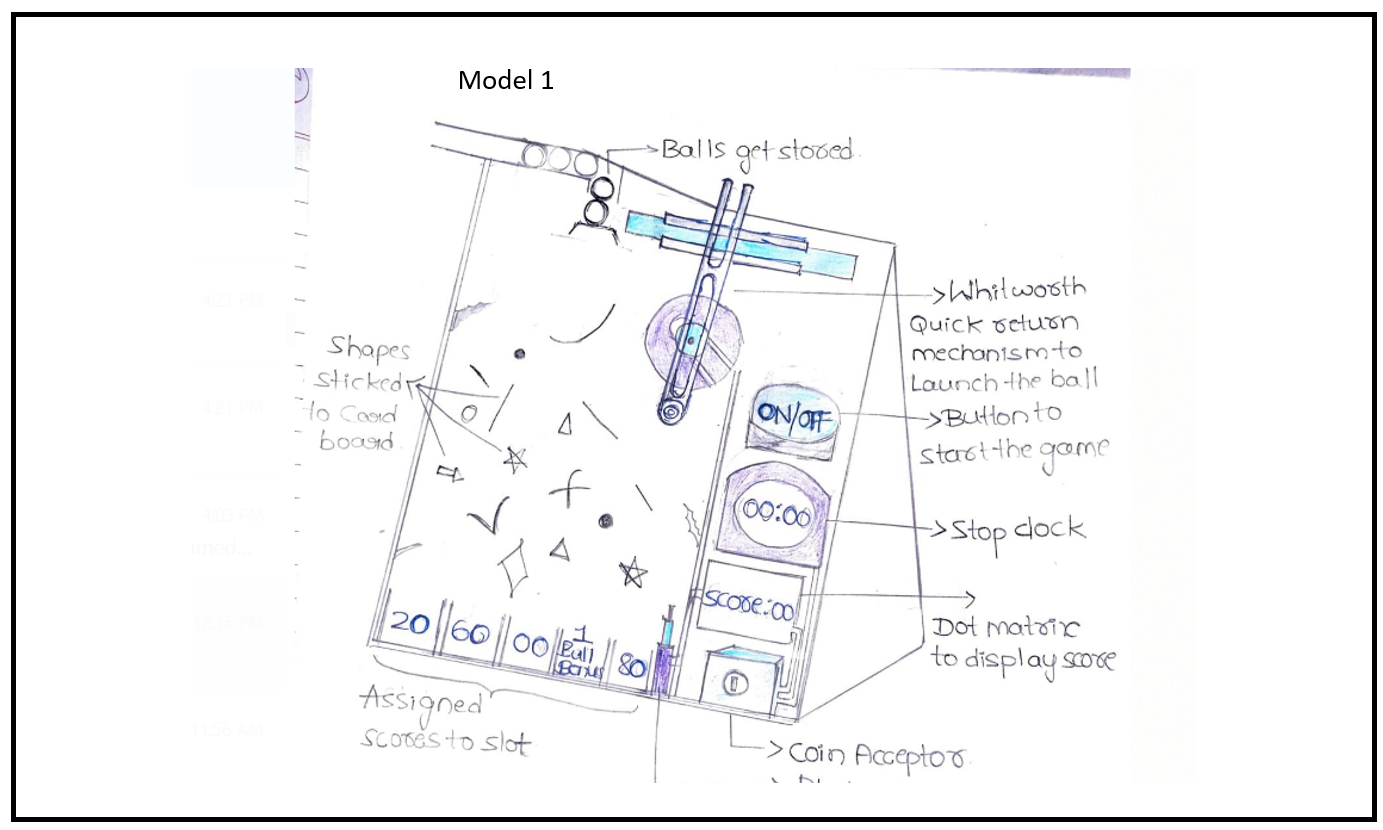 Model 1
Balls get stored.
Whitworth
Quick return
mechanism to
Launch the ball
Shapes
sticked
to Card
board.
ON/OFF
Button to
start the game
00:00
Stop clock
Score:00
Dot matrix
to display score
20
60
00
1
Ball
Bonus
80
Assigned
scores to slot
Coin Acceptor.
4:21 PM
4:21 PM
4:03 PM
12:16 PM
11:56 AM